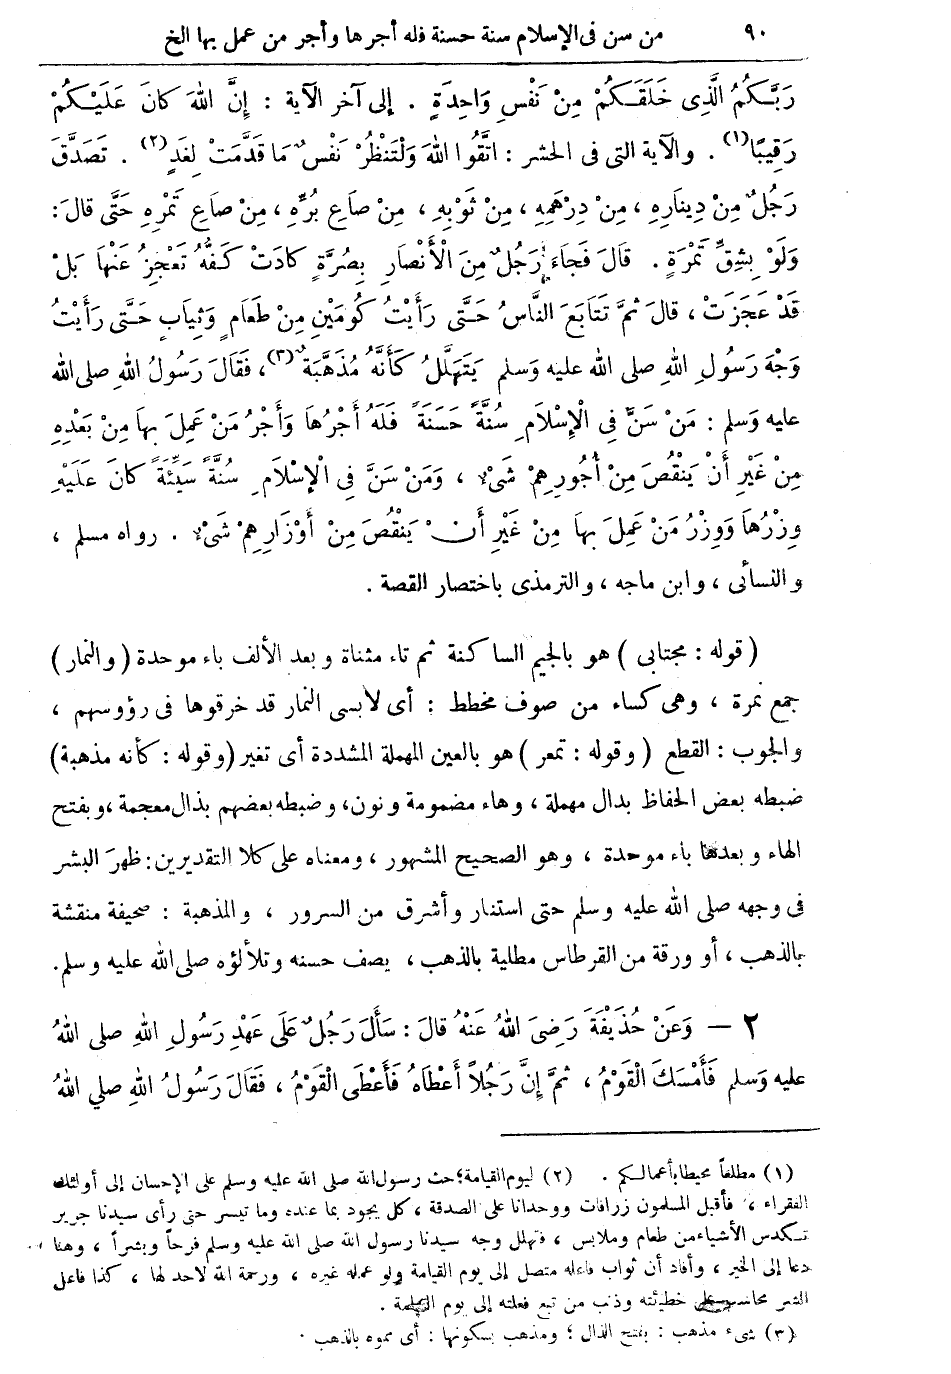 ٩٠ من سن فى الإسلام سنة حسنة فله أجرها وأجر من عمل بها الخ
رَبَّكُمُ الَّذِى خَلَقَكُمْ مِنْ نَفْسٍ وَاحِدَةٍ . إلى آخر الآية : إِنَّ اللهَ كانَ عَلَيْكُمْ
رَقِيبًا (١) . والآية التى فى الحشر : اتَّقُوا اللهَ وَلْتَنْظُرْ نَفْسٌ مَا قَدَّمَتْ لِغَدٍ (٢) . تَصَدَّقَ
رَجُلٌ مِنْ دِينَارِهِ ، مِنْ دِرْهَمِهِ ، مِنْ ثَوْبِهِ ، مِنْ صَاعِ بُرِّهِ ، مِنْ صَاعِ تَمْرِهِ حَتَّى قالَ :
وَلَوْ بِشِقِّ تَمْرَةٍ . قَالَ فَجَاءَ رَجُلٌ مِنَ الْأَنْصَارِ بِصُرَّةٍ كادَتْ كَفُّهُ تَعْجِزُ عَنْهَا بَلْ
قَدْ عَجَزَتْ ، قالَ ثمَّ تَتَابَعَ النَّاسُ حَتَّى رَأَيْتُ كُومَيْنِ مِنْ طَعَامٍ وَثِيَابٍ حَتَّى رَأَيْتُ
وَجْهَ رَسُولِ اللهِ صلى اللهُ عليه وَسلم يَتَهَلَّلُ كَأَنَّهُ مُذَهَّبَةٌ (٣) ، فَقَالَ رَسُولُ اللهِ صلى اللهُ
عليه وَسلم : مَنْ سَنَّ فِى الْإِسْلَامِ سُنَّةً حَسَنَةً فَلَهُ أَجْرُهَا وَأَجْرُ مَنْ عَمِلَ بِهَا مِنْ بَعْدِهِ
مِنْ غَيْرِ أَنْ يَنْقُصَ مِنْ أُجُورِهِمْ شَىْءٌ ، وَمَنْ سَنَّ فِى الْإِسْلَامِ سُنَّةً سَيِّئَةً كانَ عَلَيْهِ
وِزْرُهَا وَوِزْرُ مَنْ عَمِلَ بِهَا مِنْ غَيْرِ أَنْ يَنْقُصَ مِنْ أَوْزَارِهِمْ شَىْءٌ . رواه مسلم ،
والنسائى ، وابن ماجه ، والترمذى باختصار القصة .
( قوله : مجتابى ) هو بالجيم الساكنة ثم تاء مثناة وبعد الألف باء موحدة ( والنمار )
جمع نمرة ، وهى كساء من صوف مخطط : أى لابسى النمار قد خرقوها فى رؤوسهم ،
والجوب : القطع ( وقوله : تمعر ) هو بالعين المهملة المشددة أى تغير (وقوله : كأنه مذهبة)
ضبطه بعض الحفاظ بدال مهملة ، وهاء مضمومة ونون، وضبطه بعضهم بذال معجمة ، وبفتح
الهاء وبعدها باء موحدة ، وهو الصحيح المشهور ، ومعناه على كلا التقديرين : ظهرَ البشر
فى وجهه صلى الله عليه وسلم حتى استنار وأشرق من السرور ، والمذهبة : صحيفة منقشة
بالذهب ، أو ورقة من القرطاس مطلية بالذهب ، يصف حسنه وتلألؤه صلى الله عليه وسلم.
٢ — وَعَنْ حُذَيْفَةَ رَضِىَ اللهُ عَنْهُ قالَ : سَأَلَ رَجُلٌ عَلَى عَهْدِ رَسُولِ اللهِ صلى اللهُ
عليه وَسلم فَأَمْسَكَ الْقَوْمُ ، ثمَّ إِنَّ رَجُلاً أَعْطَاهُ فَأَعْطَى الْقَوْمُ ، فَقَالَ رَسُولُ اللهِ صلي اللهُ
(١) مطلعاً محيطا بأعمالكم . (٢) ليوم القيامة ؛ حث رسول الله صلى الله عليه وسلم على الإحسان إلى أولئك
الفقراء ، فأقبل المسلمون زرافات ووحدانا على الصدقة ، كل يجود بما عنده وما تيسر حتى رأى سيدنا جرير
تكدس الأشياء من طعام وملابس ، فتهلل وجه سيدنا رسول الله صلى الله عليه وسلم فرحاً وبشراً ، وهنا
دعا إلى الخير ، وأفاد أن ثواب فاعله متصل إلى يوم القيامة ولو عمله غيره ، ورحمة الله لاحد لها ، كذا فاعل
الشر محاسب على خطيئته وذنب من تبع فعلته إلى يوم القيامة .
(٣) شىء مذهب : بفتح الذال ؛ ومذهب بسكونها : أى مموه بالذهب .